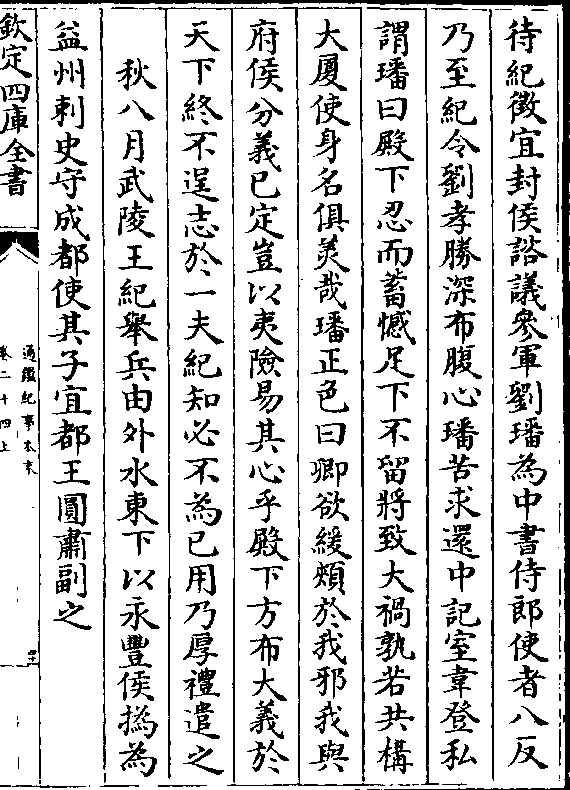 待紀徴宜封侯諮議參軍劉璠為中書侍郎使者八反
乃至紀令劉孝勝深布腹心璠苦求還中記室韋登私
謂璠曰殿下忍而蓄憾足下不留將致大禍孰若共構
大厦使身名俱美哉璠正色曰卿欲緩頰於我邪我與
府侯分義已定豈以夷險易其心乎殿下方布大義於
天下終不逞志於一夫紀知必不為已用乃厚禮遣之
秋八月武陵王紀舉兵由外水東下以永豐侯撝為
益州刺史守成都使其子宜都王圓肅副之
欽定四庫全書
通鑑紀事本末
卷二十四上